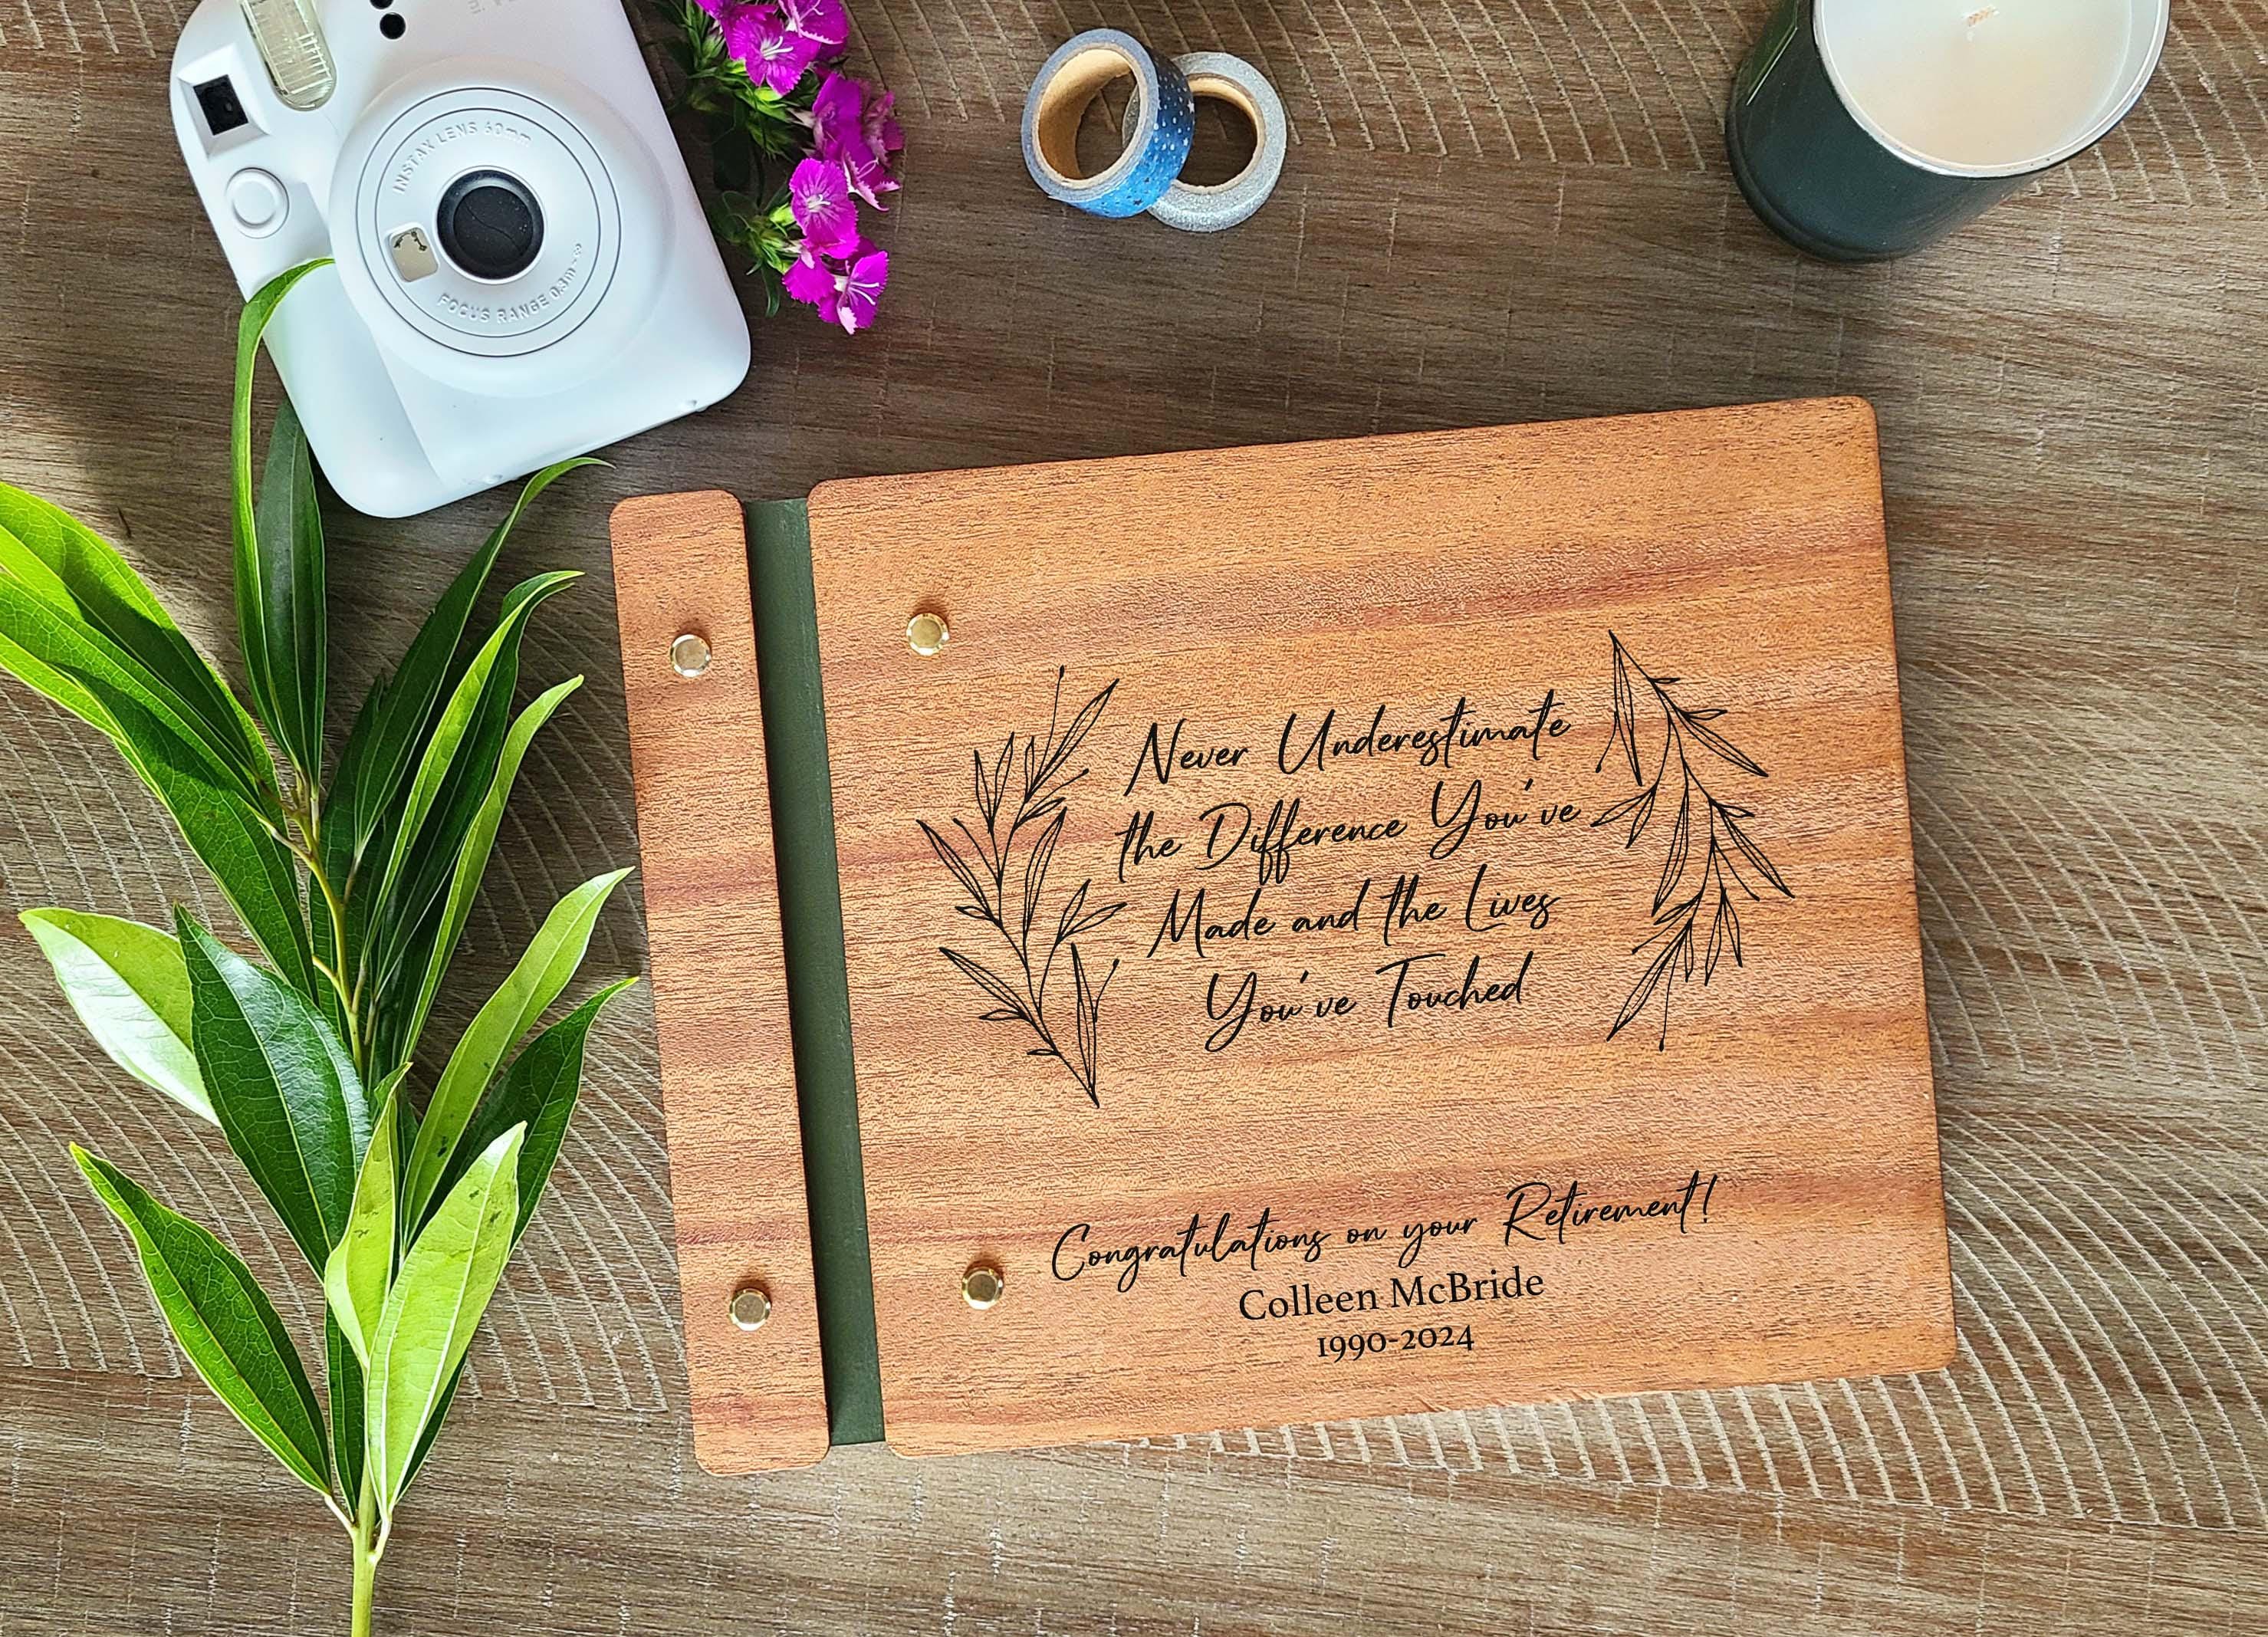 INSTAX LENS 60mm
FOCUS RANGE 0.3m-∞
Never Underestimate
the Difference You've
Made and the Lives
You've Touched
Congratulations on your Retirement!
Colleen McBride
1990-2024